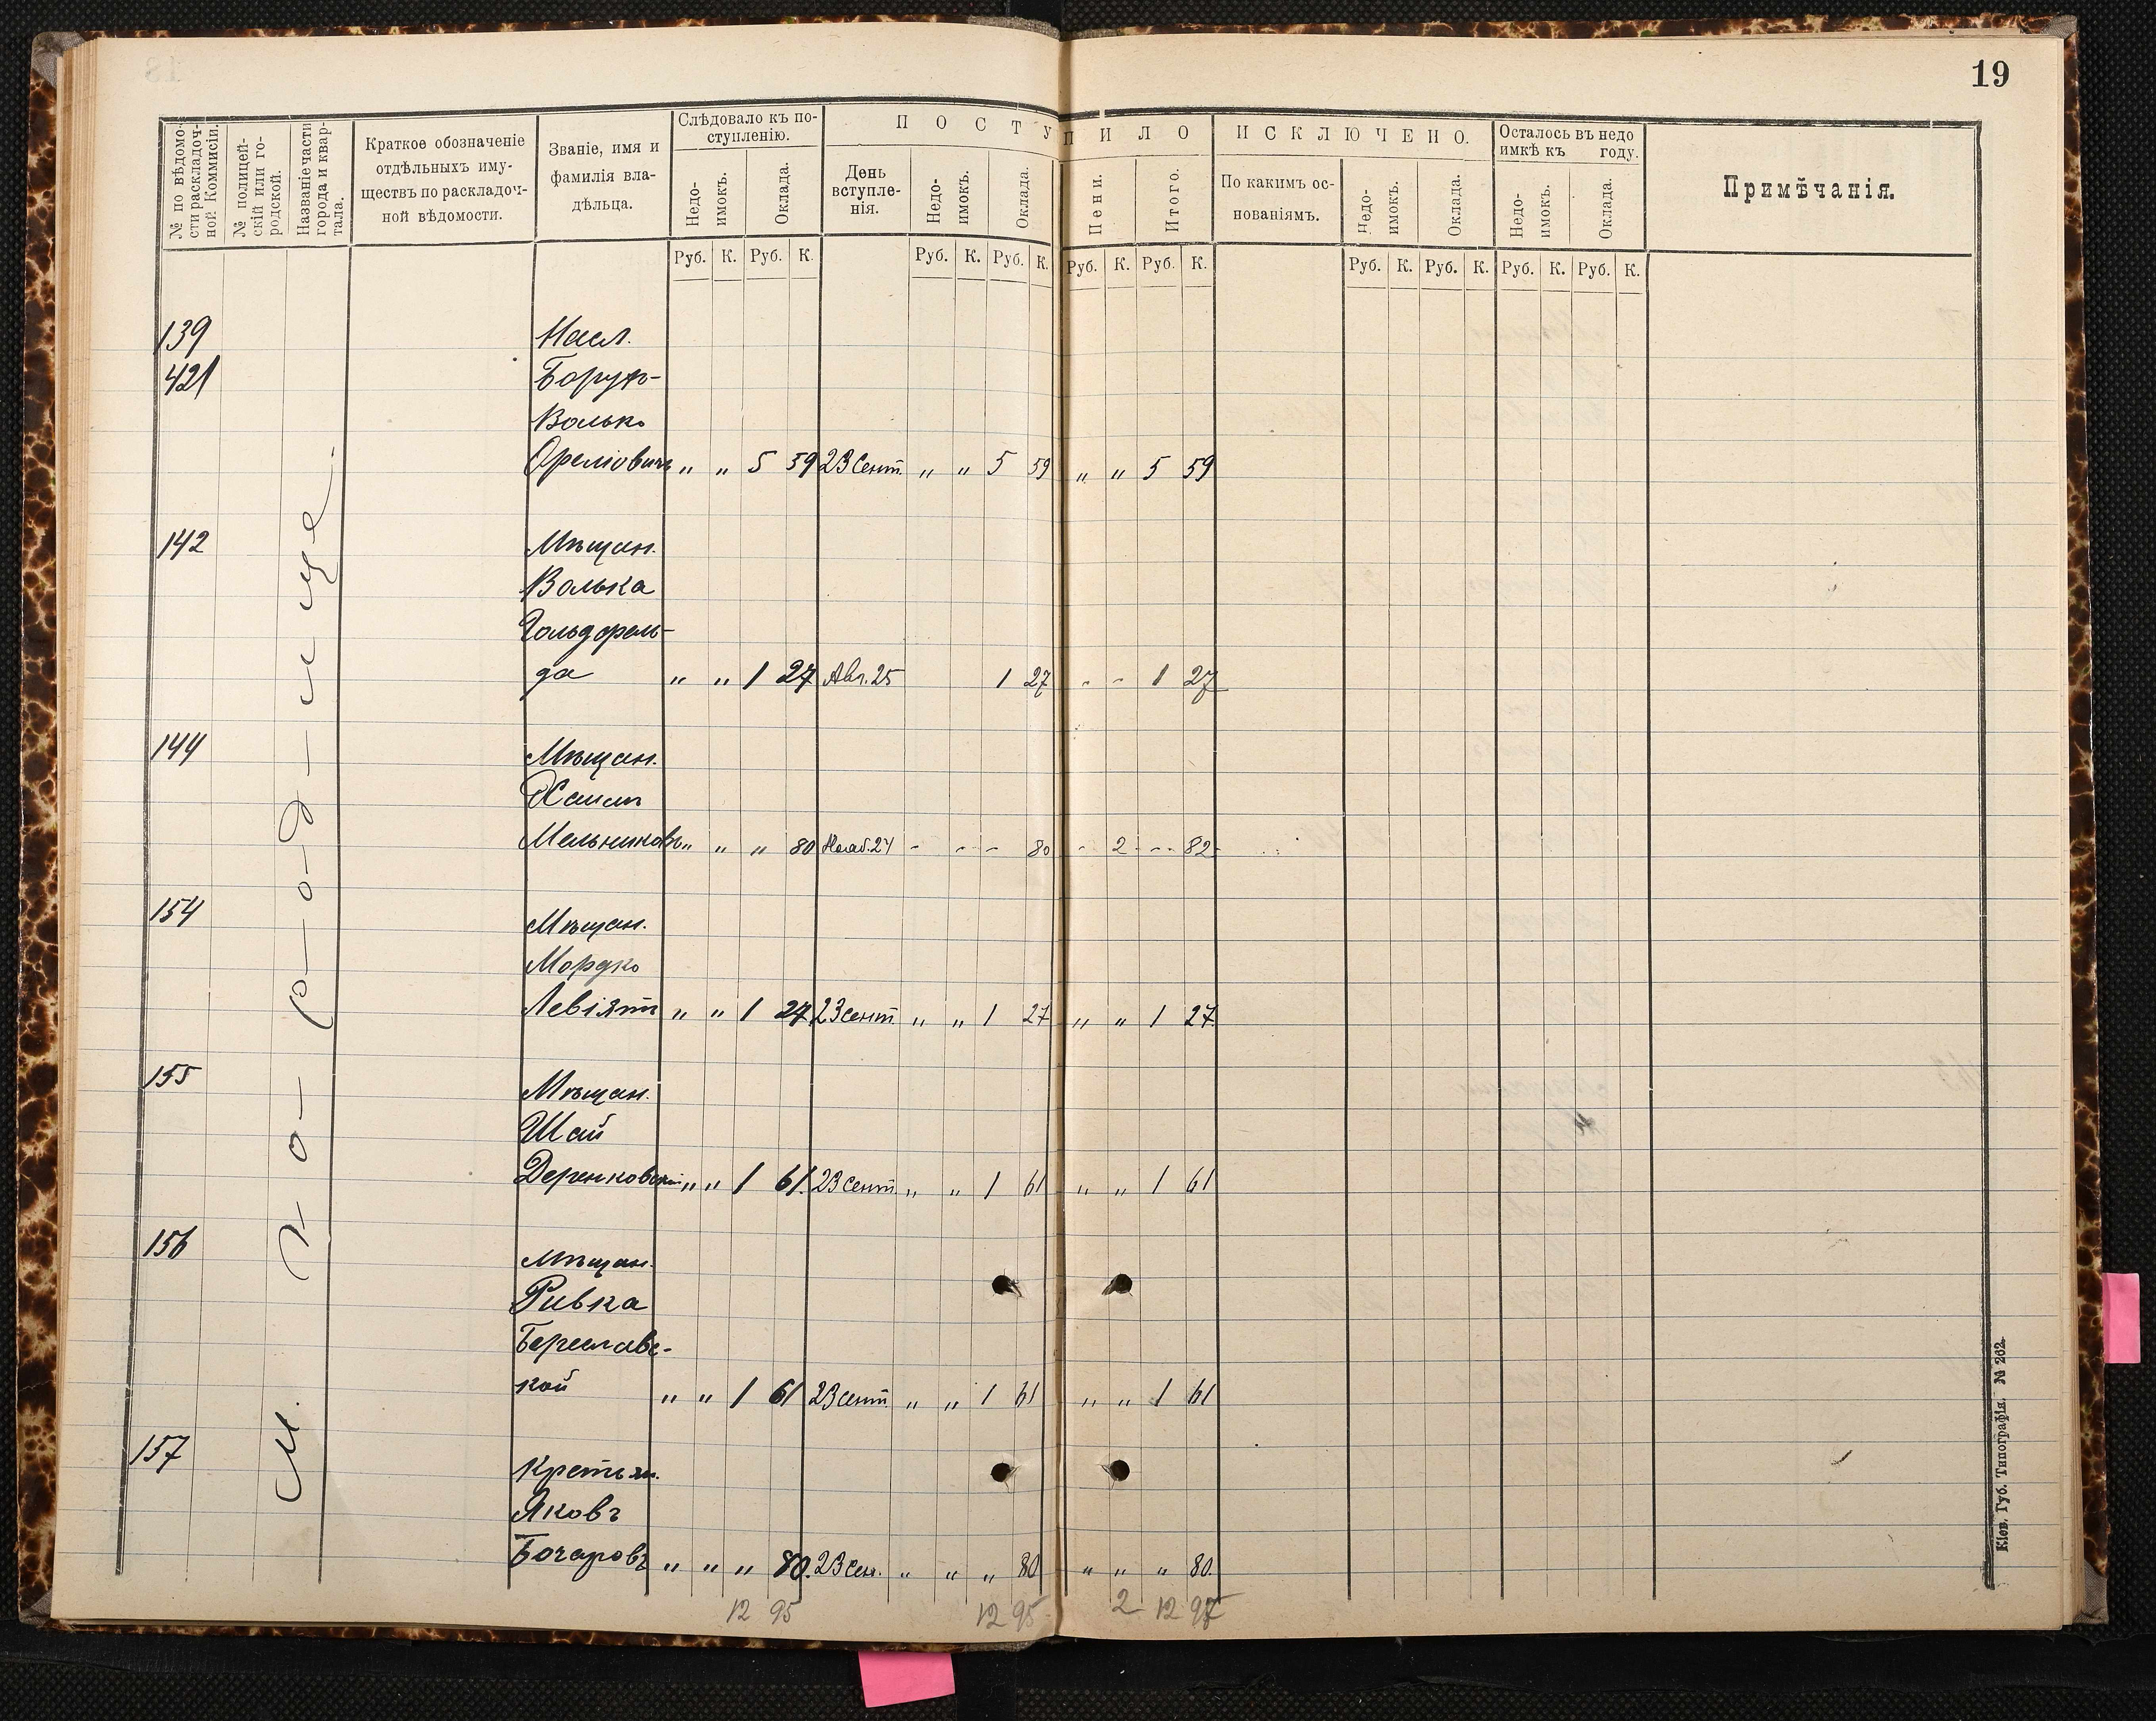 19
№ по вѣдомости раскладочной Коммисіи.
№ полицейскій или городской.
Названіе части города и квартала.
Краткое обозначеніе отдѣльныхъ имуществъ по раскладочной вѣдомости.
Званіе, имя и фамилія владѣльца.
Слѣдовало къ поступленію.
Недоимокъ. Оклада.
ПОСТУПИЛО
День вступленія. Недоимокъ. Оклада. Пени. Итого.
ИСКЛЮЧЕНО.
По какимъ основаніямъ. Недоимокъ. Оклада.
Осталось въ недоимкѣ къ году.
Недоимокъ. Оклада.
Примѣчанія.
Руб. К. Руб. К. Руб. К. Руб. К. Руб. К. Руб. К. Руб. К. Руб. К. Руб. К. Руб. К.
м. Городище
139 Насл.
421 Борух-
Волько
„ „ 5 59 23 Сент. „ „ 5 59 „ „ 5 59
142 Мѣщан.
Волька
Гольдфель-
да „ „ 1 27 Авг. 25 1 27 - - 1 27
144 Мѣщан.
Хаимъ
Мельниковъ „ „ „ 80 Нояб. 24 - - - 80 - 2 - - 82
154 Мѣщан.
Мордко
Левіятъ „ „ 1 27 23 сент. „ „ 1 27 „ „ 1 27
155 Мѣщан.
Шай
Деренковскій „ „ 1 61. 23 сент. „ „ 1 61 „ „ 1 61
156 Мѣщан.
Ривка
Береславс-
кой „ „ 1 61 23 сент. „ „ 1 61 „ „ 1 61
157 Крестьян.
Яковъ
Бочаровъ „ „ „ 80. 23 Сен. „ „ „ 80 „ „ „ 80.
12 95 12 95 2 12 97
Кіев. Губ. Типографія. № 262.